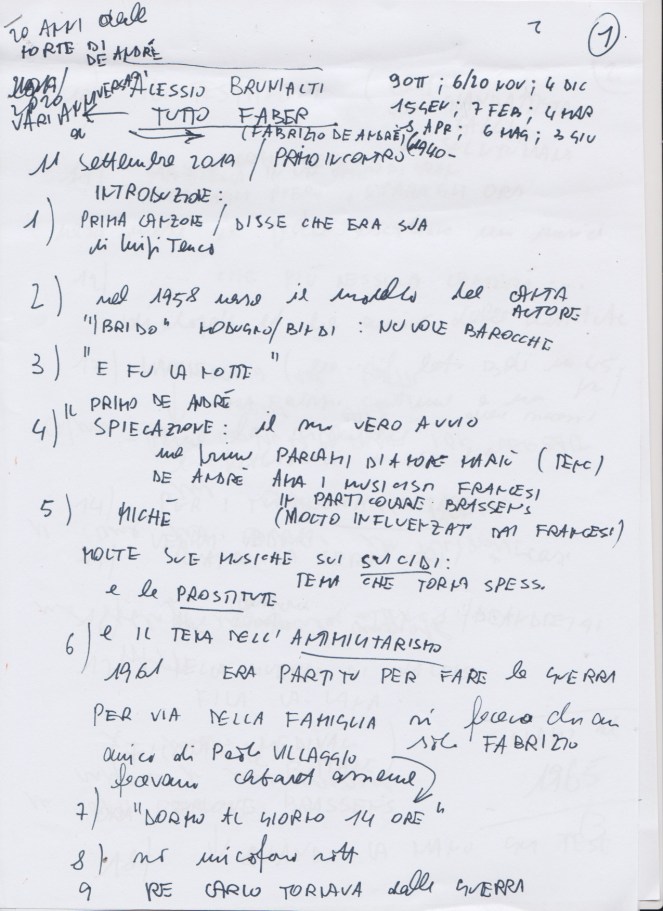 20 ANNI dalla
MORTE DI
DE ANDRÉ
1
ALESSIO BRUNIALTI
9 OTT ; 6/20 NOV ; 4 DIC
2020
VARI ANNIVERSARI
TUTTO FABER
15 GEN ; 7 FEB ; 4 MAR
(FABRIZIO DE ANDRÉ)
3 APR ; 6 MAG ; 3 GIU
1940-
11 settembre 2019 / PRIMO INCONTRO
INTRODUZIONE :
1) PRIMA CANZONE / DISSE CHE ERA SUA
di Luigi Tenco
2) nel 1958 nasce il modello del CANTA
AUTORE
"IBRIDO" MODUGNO/BINDI : NUVOLE BAROCCHE
3) "E FU LA NOTTE"
IL PRIMO DE ANDRÉ
4) SPIEGAZIONE : il suo VERO AVVIO
PARLAMI D'AMORE MARIÙ (
DE ANDRÉ AMA I MUSICISTI FRANCESI
IN PARTICOLARE BRASSENS
5) MICHÉ (MOLTO INFLUENZATI DAI FRANCESI)
MOLTE SUE MUSICHE SUI SUICIDI :
TEMA CHE TORNA SPESS.
e le PROSTITUTE
6) e IL TEMA DELL'ANTIMILITARISMO
1961 ERA PARTITO PER FARE la GUERRA
PER VIA DELLA FAMIGLIA si faceva chiamare
solo FABRIZIO
amico di Paolo VILLAGGIO
facevano cabaret assieme
7) "DORMO AL GIORNO 14 ORE"
8) microfono
9 RE CARLO TORNAVA dalla GUERRA